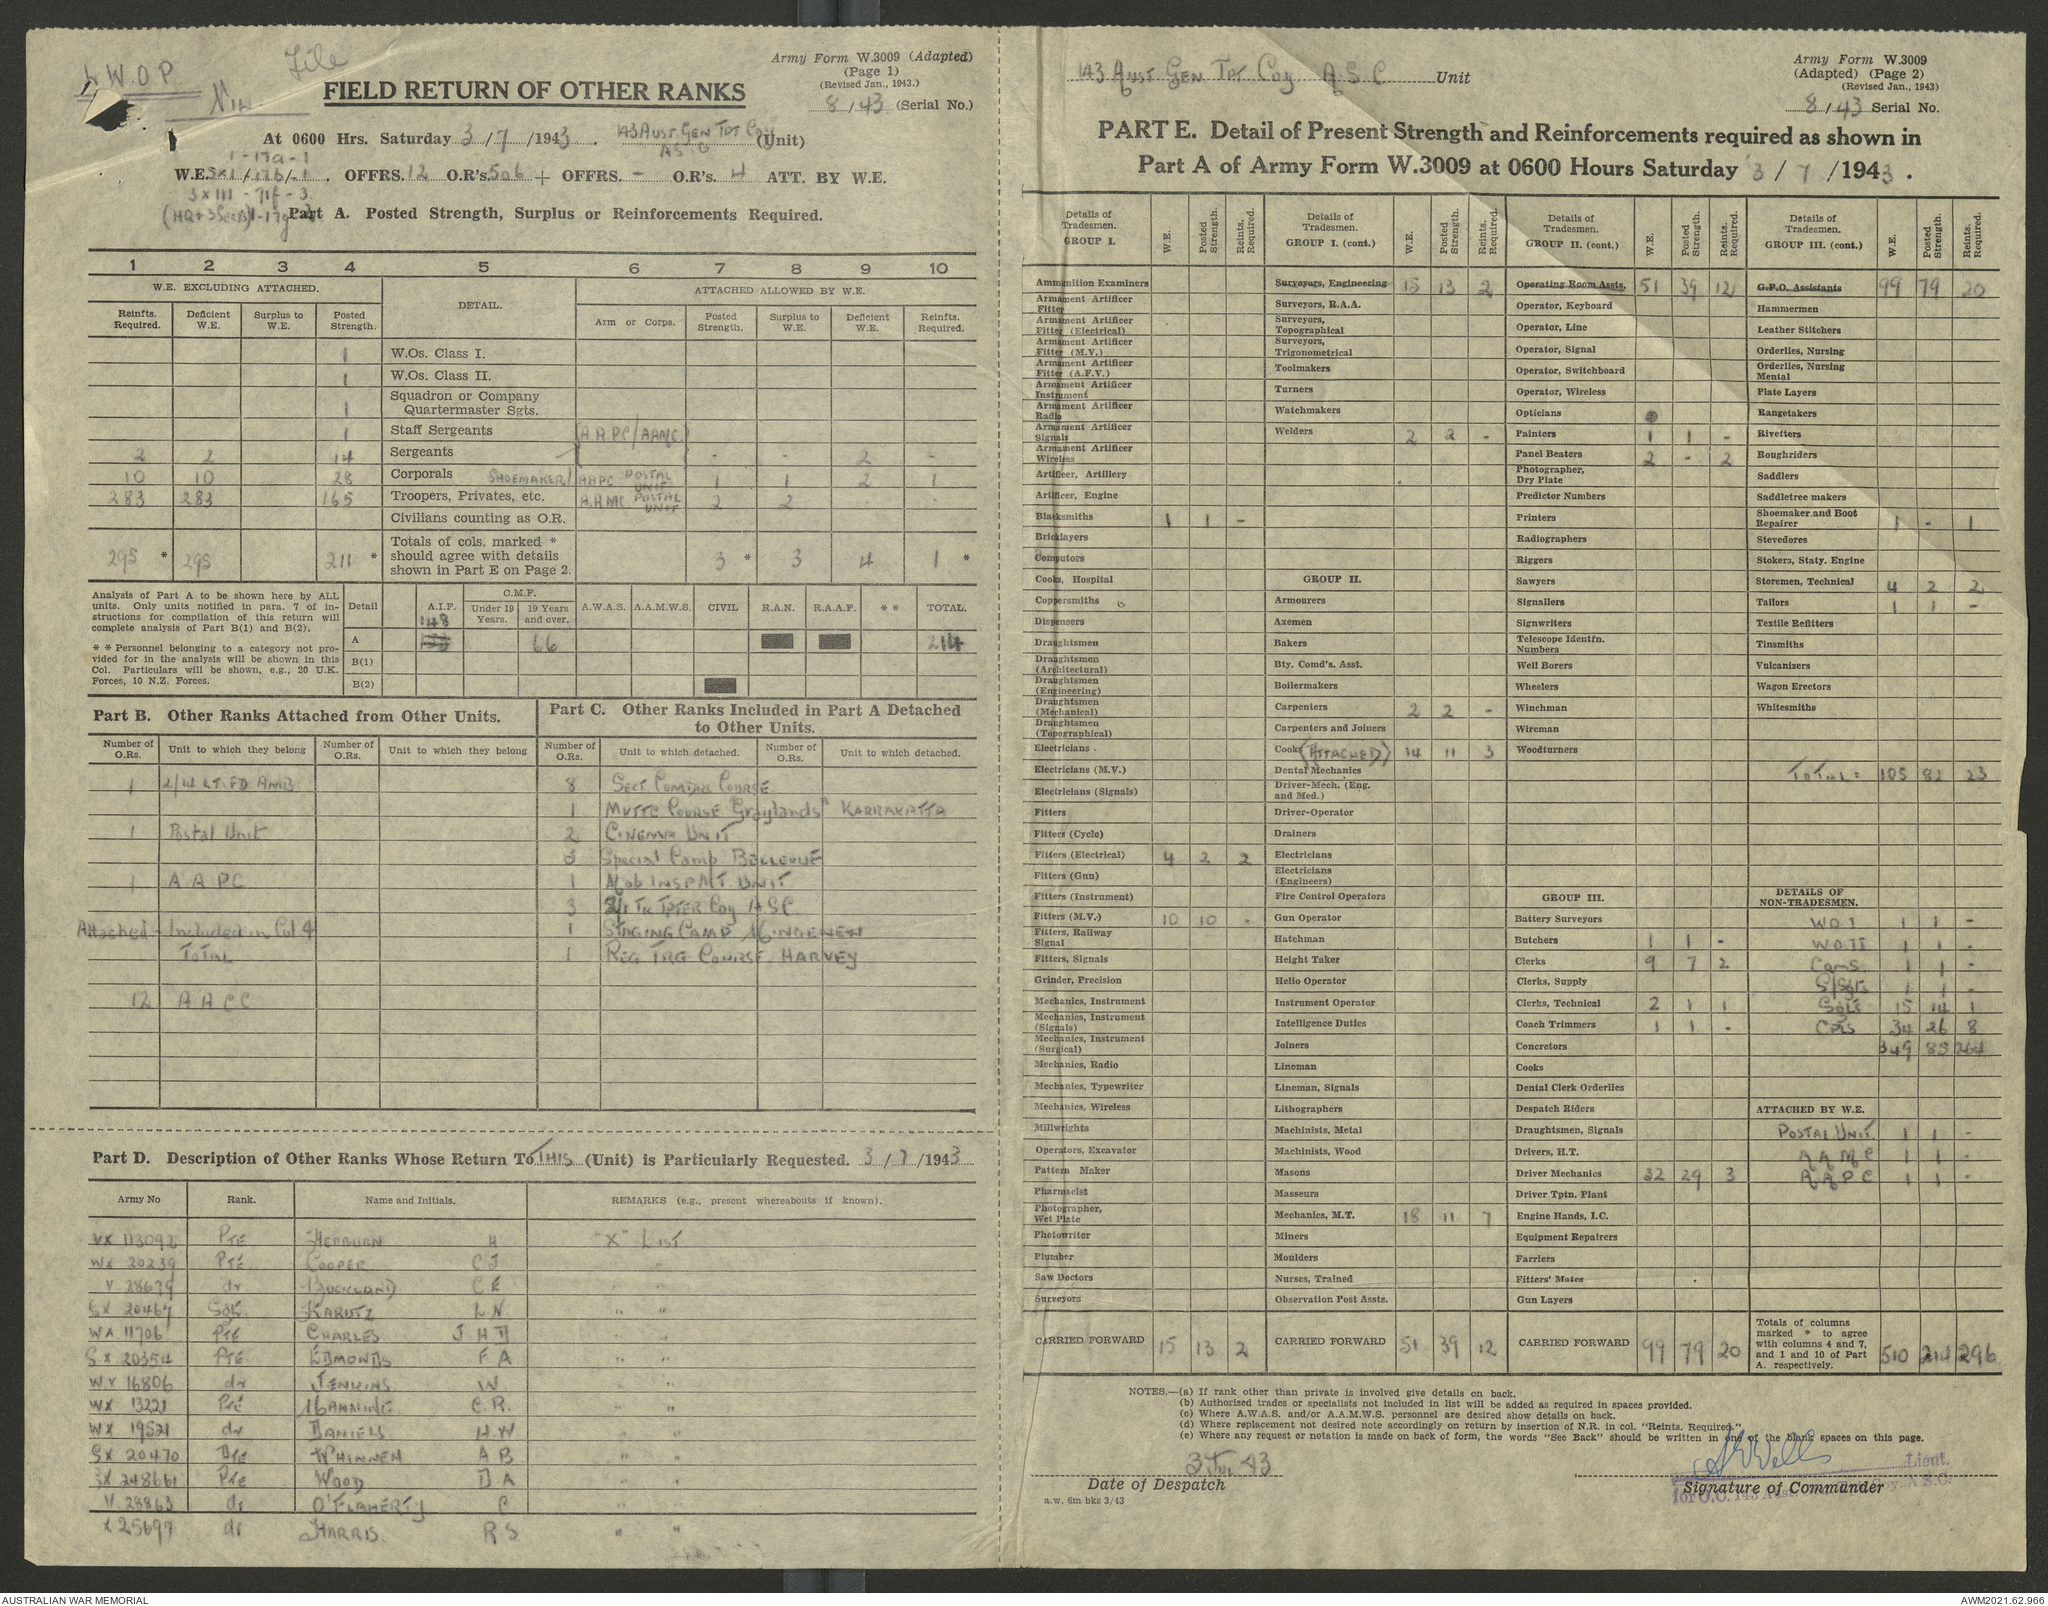 L.W.O.P
File
Nil
Army Form W.3009 (Adapted)
(Page 1)
(Revised Jan., 1943.)
8/43 (Serial No.)
FIELD RETURN OF OTHER RANKS
At 0600 Hrs. Saturday 3/7/1943. 143 Aust Gen Tpt Coy (Unit)
ASC
1-17a-1
W.E. 5x1/17b/-1. OFFRS. 12 O.R's. 506 + OFFRS. - O.R's. 4 ATT. BY W.E.
3x111 - 71f - 3
(HQ+3 Secs)
Part A. Posted Strength, Surplus or Reinforcements Required.
1 2 3 4 5 6 7 8 9 10
W.E. EXCLUDING ATTACHED. DETAIL. ATTACHED ALLOWED BY W.E.
Reinfts. Required. Deficient W.E. Surplus to W.E. Posted Strength. Arm or Corps. Posted Strength. Surplus to W.E. Deficient W.E. Reinfts. Required.
1 W.Os. Class I.
1 W.Os. Class II.
1 Squadron or Company Quartermaster Sgts.
1 Staff Sergeants (AAPC/AAMC)
2 2 14 Sergeants - - 2 -
10 10 28 Corporals SHOEMAKER/AAPC POSTAL UNIT 1 1 2 1
283 283 165 Troopers, Privates, etc. A.AMC POSTAL UNIT 2 2 - -
Civilians counting as O.R.
295 * 295 211 * Totals of cols. marked * should agree with details shown in Part E on Page 2. 3 * 3 4 1 *
Analysis of Part A to be shown here by ALL units. Only units notified in para. 7 of instructions for compilation of this return will complete analysis of Part B(1) and B(2).
* * Personnel belonging to a category not provided for in the analysis will be shown in this Col. Particulars will be shown, e.g., 20 U.K. Forces, 10 N.Z. Forces.
Detail A.I.F. C.M.F. Under 19 Years. 19 Years and over. A.W.A.S. A.A.M.W.S. CIVIL R.A.N. R.A.A.F. * * TOTAL.
A 148 66 214
B(1)
B(2)
Part B. Other Ranks Attached from Other Units.
Part C. Other Ranks Included in Part A Detached to Other Units.
Number of O.Rs. Unit to which they belong Number of O.Rs. Unit to which they belong Number of O.Rs. Unit to which detached. Number of O.Rs. Unit to which detached.
1 2/14 LT. FD AMB 8 Sect Comdrs Course
1 MVTTC Course "Graylands" KARRAKATTA
1 Postal Unit 2 CINEMA UNIT
3 Special Camp BELLEVUE
1 A A P C 1 Mob INSP M T UNIT
3 2/1 Tk TPTER Coy ASC
Attached - Included in Col 4 1 STAGING CAMP MINGENEW
TOTAL 1 REG TRG COURSE HARVEY
12 A A C C
Part D. Description of Other Ranks Whose Return To THIS (Unit) is Particularly Requested. 3/7/1943
Army No Rank. Name and Initials. REMARKS (e.g., present whereabouts if known).
VX 113092 Pte HEPBURN H "X" LIST
WX 20239 Pte COOPER C J " "
V 28679 do BUCKLAND C E " "
SX 20467 Sgt. KARUTZ L N. " "
WX 11706 Pte CHARLES J H D " "
SX 20354 Pte EDMONDS F A " "
WX 16806 do JENKINS W " "
WX 13221 Pte MANNING C R. " "
WX 19521 do DANIELS H W " "
SX 20470 Pte WHINNEN A B " "
SX 248661 Pte WOOD D A " "
V 28863 do O'FLAHERTY P " "
X 25697 do HARRIS R S " "
143 Aust Gen Tpt Coy A.S.C Unit
Army Form W.3009
(Adapted) (Page 2)
(Revised Jan., 1943)
8/43 Serial No.
PART E. Detail of Present Strength and Reinforcements required as shown in
Part A of Army Form W.3009 at 0600 Hours Saturday 3/7/1943.
Details of Tradesmen. GROUP I. W.E. Posted Strength. Reints. Required.
Ammunition Examiners
Armament Artificer Fitter
Armament Artificer Fitter (Electrical)
Armament Artificer Fitter (M.V.)
Armament Artificer Fitter (A.F.V.)
Armament Artificer Instrument
Armament Artificer Radio
Armament Artificer Signals
Armament Artificer Wireless
Artificer, Artillery
Artificer, Engine
Blacksmiths 1 1 -
Bricklayers
Computors
Cooks, Hospital
Coppersmiths
Dispensers
Draughtsmen
Draughtsmen (Architectural)
Draughtsmen (Engineering)
Draughtsmen (Mechanical)
Draughtsmen (Topographical)
Electricians
Electricians (M.V.)
Electricians (Signals)
Fitters
Fitters (Cycle)
Fitters (Electrical) 4 2 2
Fitters (Gun)
Fitters (Instrument)
Fitters (M.V.) 10 10 -
Fitters, Railway Signal
Fitters, Signals
Grinder, Precision
Mechanics, Instrument
Mechanics, Instrument (Signals)
Mechanics, Instrument (Surgical)
Mechanics, Radio
Mechanics, Typewriter
Mechanics, Wireless
Millwrights
Operators, Excavator
Pattern Maker
Pharmacist
Photographer, Wet Plate
Photowriter
Plumber
Saw Doctors
Surveyors
CARRIED FORWARD 15 13 2
Details of Tradesmen. GROUP I. (cont.) W.E. Posted Strength. Reints. Required.
Surveyors, Engineering 15 13 2
Surveyors, R.A.A.
Surveyors, Topographical
Surveyors, Trigonometrical
Toolmakers
Turners
Watchmakers
Welders 2 2 -
GROUP II.
Armourers
Axemen
Bakers
Bty. Comd's. Asst.
Boilermakers
Carpenters 2 2 -
Carpenters and Joiners
Cooks (ATTACHED) 14 11 3
Dental Mechanics
Driver-Mech. (Eng. and Med.)
Driver-Operator
Drainers
Electricians
Electricians (Engineers)
Fire Control Operators
Gun Operator
Hatchman
Height Taker
Helio Operator
Instrument Operator
Intelligence Duties
Joiners
Lineman
Lineman, Signals
Lithographers
Machinists, Metal
Machinists, Wood
Masons
Masseurs
Mechanics, M.T. 18 11 7
Miners
Moulders
Nurses, Trained
Observation Post Assts.
CARRIED FORWARD 51 39 12
Details of Tradesmen. GROUP II. (cont.) W.E. Posted Strength. Reints. Required.
Operating Room Assts. 51 39 12
Operator, Keyboard
Operator, Line
Operator, Signal
Operator, Switchboard
Operator, Wireless
Opticians
Painters 1 1 -
Panel Beaters 2 - 2
Photographer, Dry Plate
Predictor Numbers
Printers
Radiographers
Riggers
Sawyers
Signallers
Signwriters
Telescope Identfn. Numbers
Well Borers
Wheelers
Winchman
Wireman
Woodturners
GROUP III.
Battery Surveyors
Butchers 1 1 -
Clerks 9 7 2
Clerks, Supply
Clerks, Technical 2 1 1
Coach Trimmers 1 1 -
Concretors
Cooks
Dental Clerk Orderlies
Despatch Riders
Draughtsmen, Signals
Drivers, H.T.
Driver Mechanics 32 29 3
Driver Tptn. Plant
Engine Hands, I.C.
Equipment Repairers
Farriers
Fitters' Mates
Gun Layers
CARRIED FORWARD 99 79 20
Details of Tradesmen. GROUP III. (cont.) W.E. Posted Strength. Reints. Required.
G.P.O. Assistants 99 79 20
Hammermen
Leather Stitchers
Orderlies, Nursing
Orderlies, Nursing Mental
Plate Layers
Rangetakers
Rivetters
Roughriders
Saddlers
Saddletree makers
Shoemaker and Boot Repairer 1 - 1
Stevedores
Stokers, Staty. Engine
Storemen, Technical 4 2 2
Tailors 1 1 -
Textile Refitters
Tinsmiths
Vulcanizers
Wagon Erectors
Whitesmiths
TOTAL = 105 82 23
DETAILS OF NON-TRADESMEN.
W O I 1 1 -
W O II 1 1 -
CQMS. 1 1 -
S/Sgts 1 1 -
Sgts 15 14 1
Cpls 34 26 8
349 85 264
ATTACHED BY W.E.
POSTAL UNIT 1 1 -
A A M C 1 1 -
A A P C 1 1 -
Totals of columns marked * to agree with columns 4 and 7, and 1 and 10 of Part A. respectively. 510 214 296
NOTES.—(a) If rank other than private is involved give details on back.
(b) Authorised trades or specialists not included in list will be added as required in spaces provided.
(c) Where A.W.A.S. and/or A.A.M.W.S. personnel are desired show details on back.
(d) Where replacement not desired note accordingly on return by insertion of N.R. in col. "Reints. Required."
(e) Where any request or notation is made on back of form, the words "See Back" should be written in one of the blank spaces on this page.
3 Jul 43
Date of Despatch
a.w. 6m bks 3/43
Lieut.
for O.C. 143 Aust. Coy. A.S.C.
Signature of Commander
AUSTRALIAN WAR MEMORIAL
AWM2021.62.966